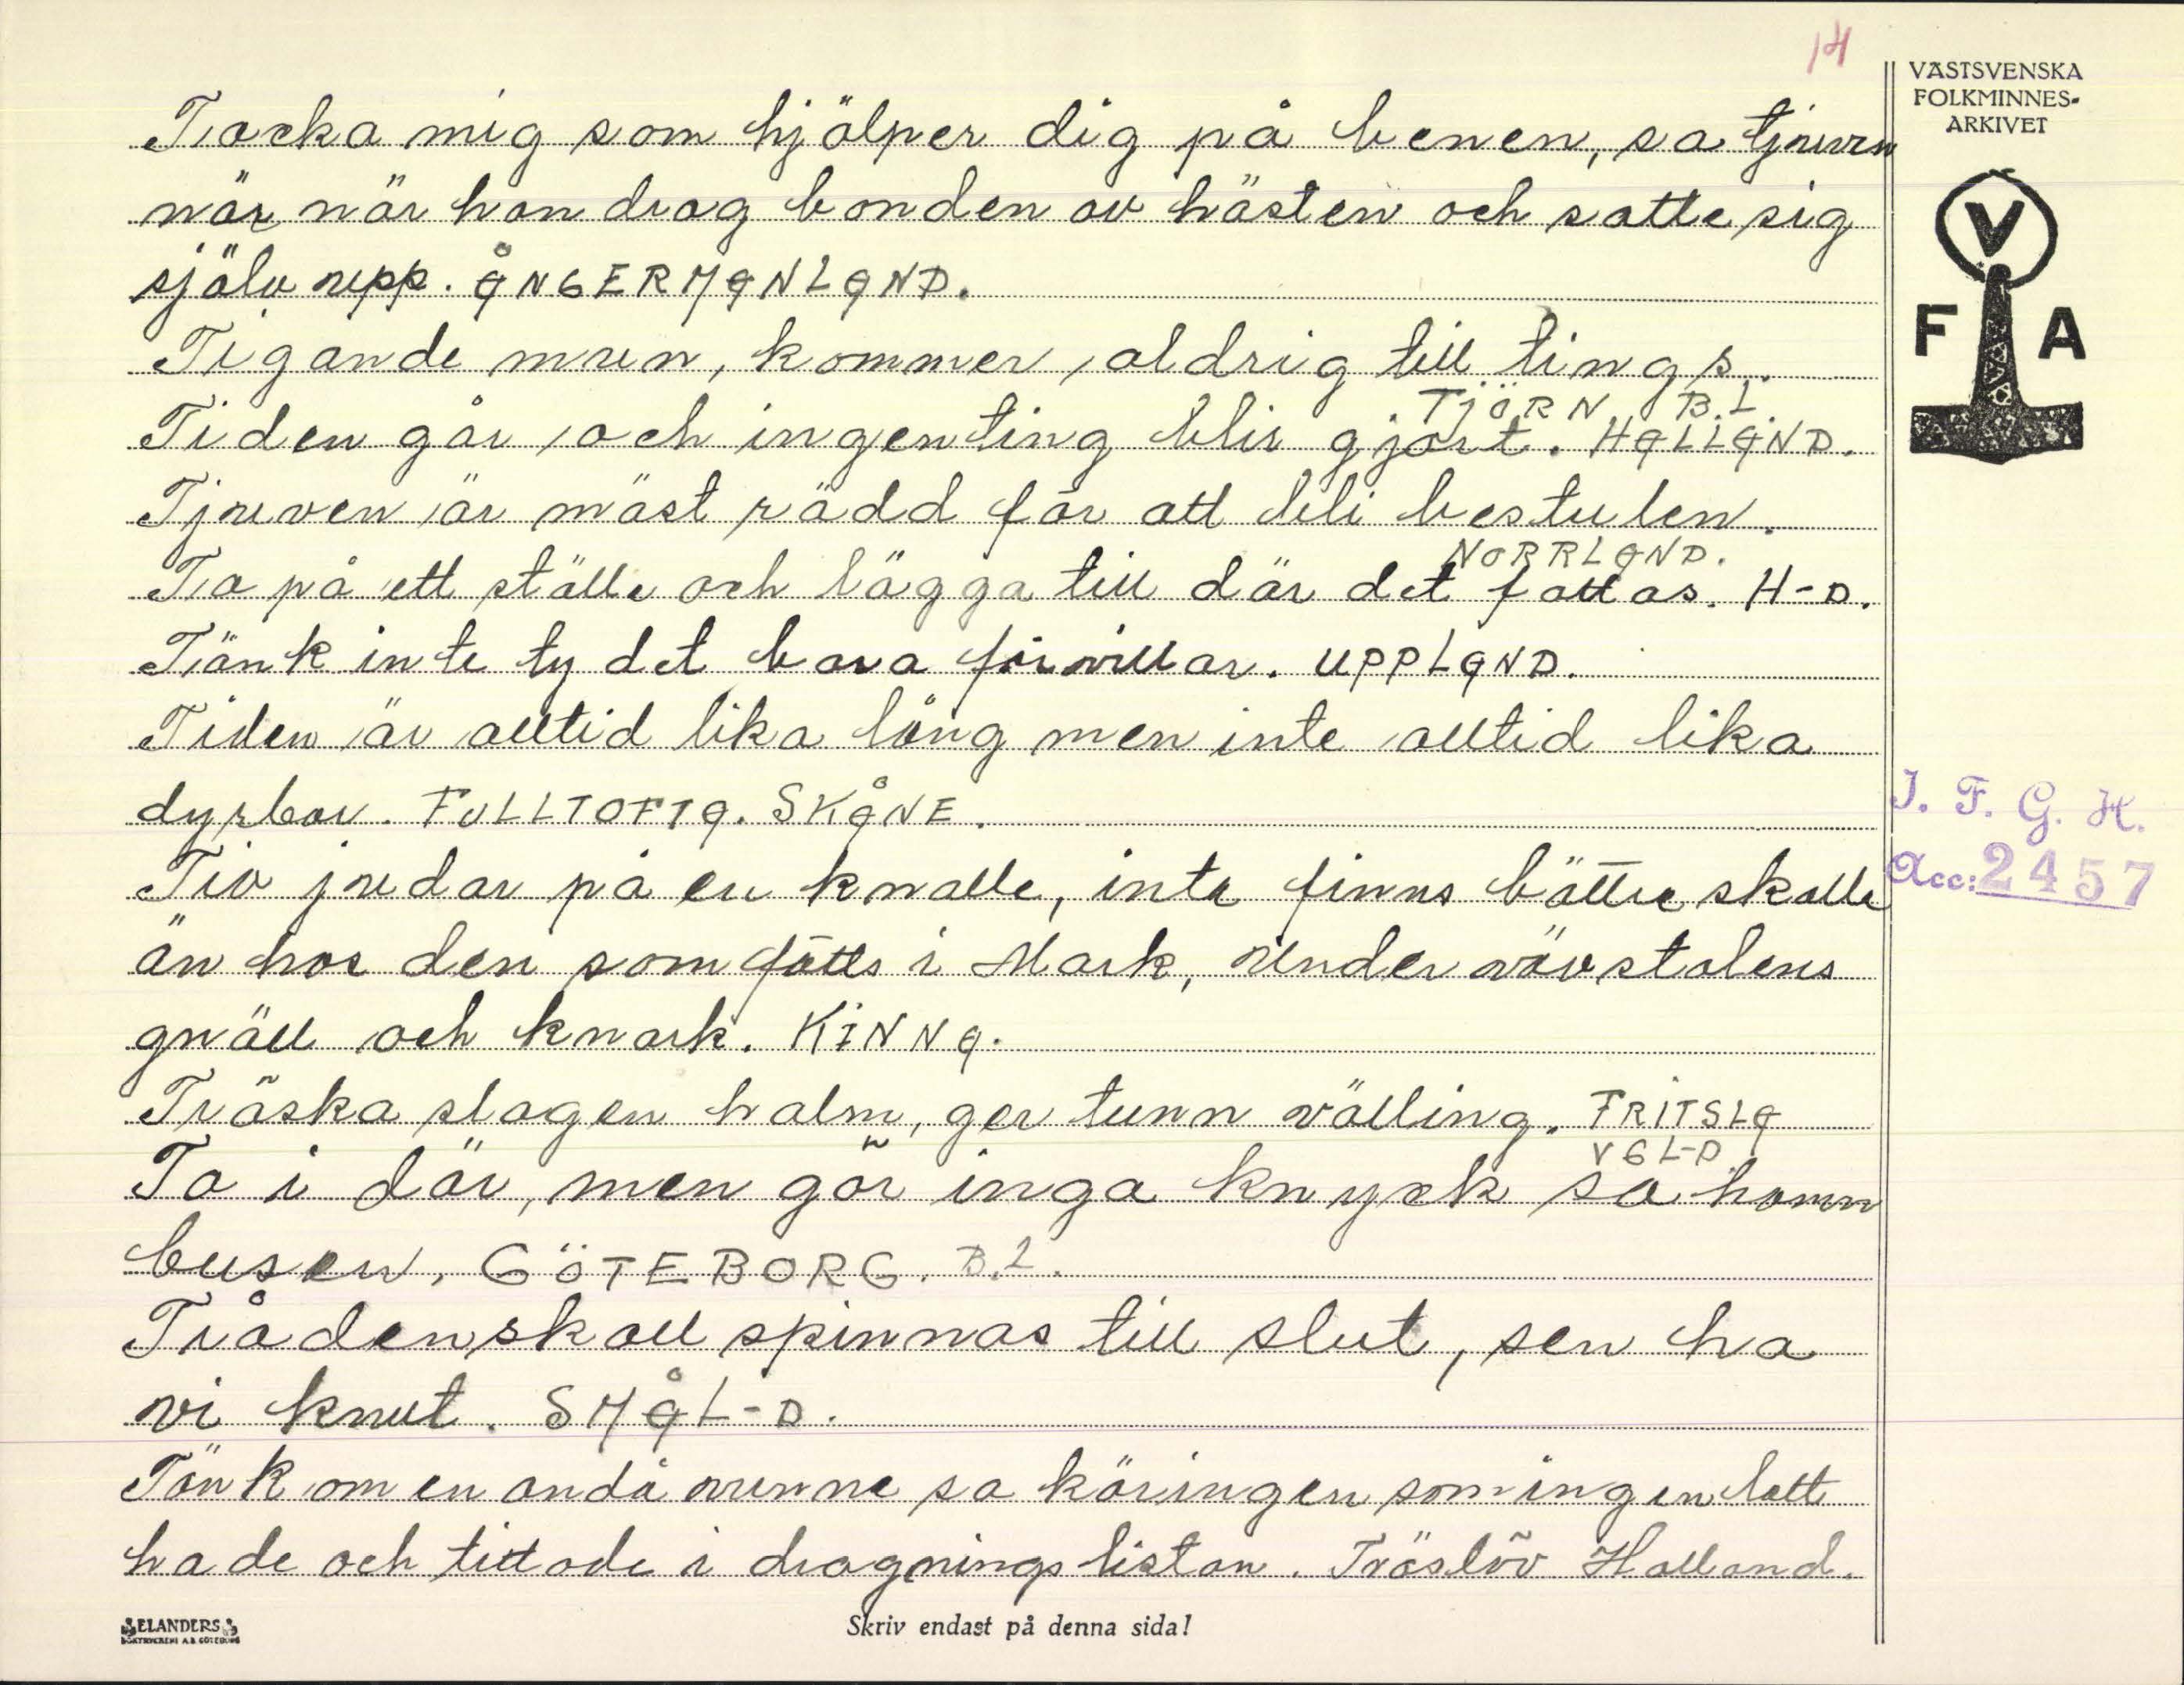 14
VÄSTSVENSKA
FOLKMINNES-
ARKIVET
V
F A
Tacka mig som hjälper dig på benen, sa tjuven
när när han drog bonden av hästen och satte sig
själv upp. ÅNGERMANLAND.
Tigande mun, kommer aldrig till tings.
TJÖRN B.L.
Tiden går och ingenting blir gjort. HALLAND.
Tjuven är mäst rädd för att bli bestulen.
NORRLAND.
Ta på ett ställe och lägga till där det fattas. H-D.
Tänk inte ty det bara förvillar. UPPLAND.
Tiden är alltid lika lång men inte alltid lika
dyrbar. FULLTOFTA. SKÅNE.
Tio judar på en knalle, inte finns bättre skalle
än hos den som fötts i Mark, under vävstolens
gnäll och knark. KINNA.
Träska slagen halm, ger tunn välling. FRITSLA
VGL-D
Ta i där, men gör inga knyck sa hamn
busen, GÖTEBORG. B.L.
Tråden skall spinnas till slut, sen ha
vi knut. SMÅL-D.
Tänk om en ändå vunne sa käringen som ingen lott
hade och tittade i dragnings listan. Träslöv Halland.
I. F. G. H.
Acc: 2457
ELANDERS
BOKTRYCKERI A.B. GÖTEBORG
Skriv endast på denna sida!